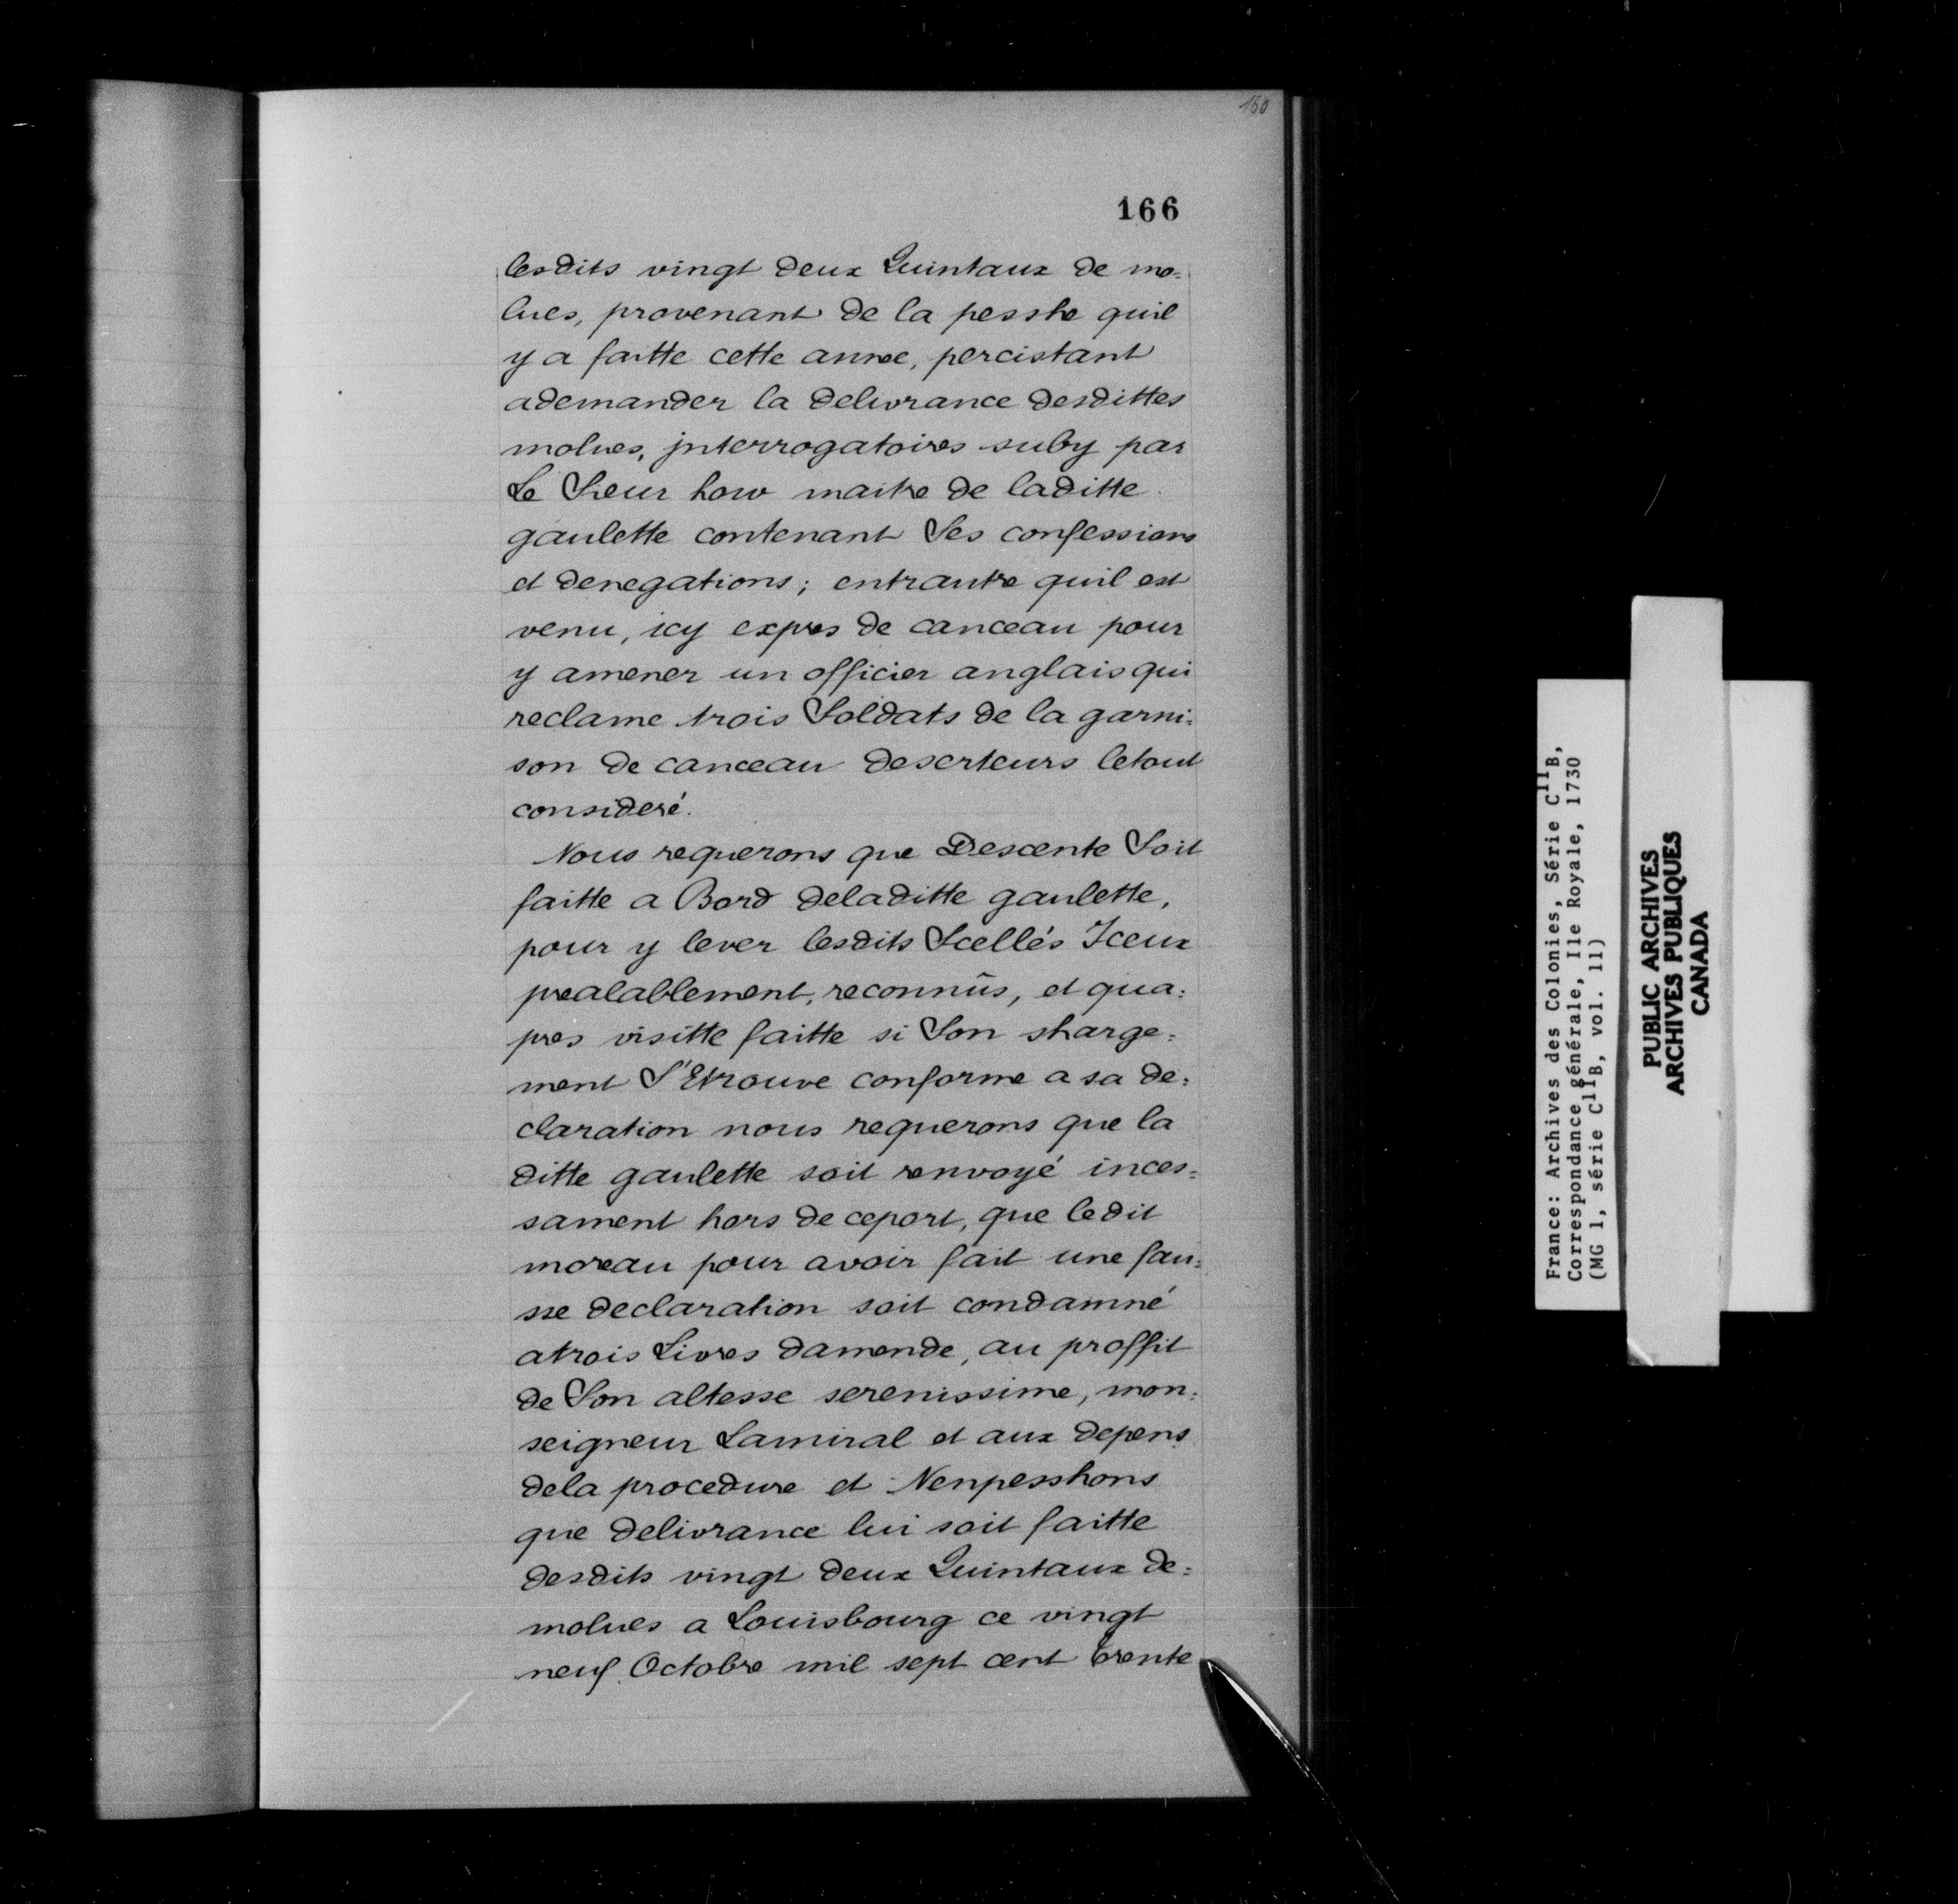 160
166
lesdits vingt deux Quintaux de mo=
lues, provenant de la pesshe quil
y a faitte cette annee, percistant
ademander la delivrance desdittes
molues, jnterrogatoires suby par
Le Sieur how maitre de laditte
gaulette contenant Ses confessions
et denegations; entrautre quil est
venu, icy expres de canceau pour
y amener un officier anglais qui
reclame trois Soldats de la garni=
son de canceau deserteurs letout
consideré.
Nous requerons que Descente Soit
faitte a Bord deladitte gaulette,
pour y lever lesdits Scellés Iceux
prealablement, reconnûs, et qua=
pres visitte faitte si Son sharge=
ment S'Etrouve conforme a sa de=
claration nous requerons que la
ditte gaulette soit renvoyé inces=
sament hors de ceport, que ledit
moreau pour avoir fait une fau=
sse declaration soit condamné
atrois Livres damende, au proffit
de Son altesse serenissime, mon=
seigneur Lamiral et aux depens
dela procedure et Nenpesshons
que delivrance lui soit faitte
desdits vingt deux Quintaux de=
molues a Louisbourg ce vingt
neuf Octobre mil sept cent trente
France: Archives des Colonies, Série C11B,
Correspondance générale, Ile Royale, 1730
(MG 1, série C11B, vol. 11)
PUBLIC ARCHIVES
ARCHIVES PUBLIQUES
CANADA